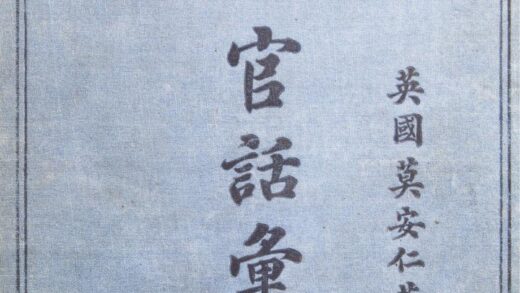 英國莫安仁
官話彙